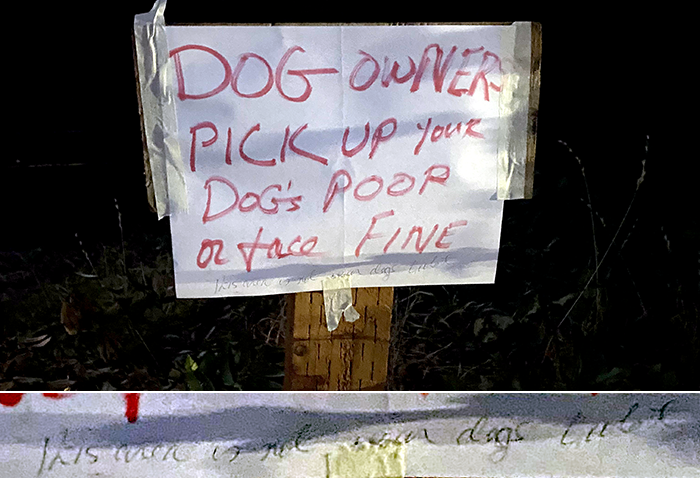 DOG OWNERS
PICK UP your
DOG's POOP
or face FINE
This area is not your dogs toilet
This area is not your dogs toilet